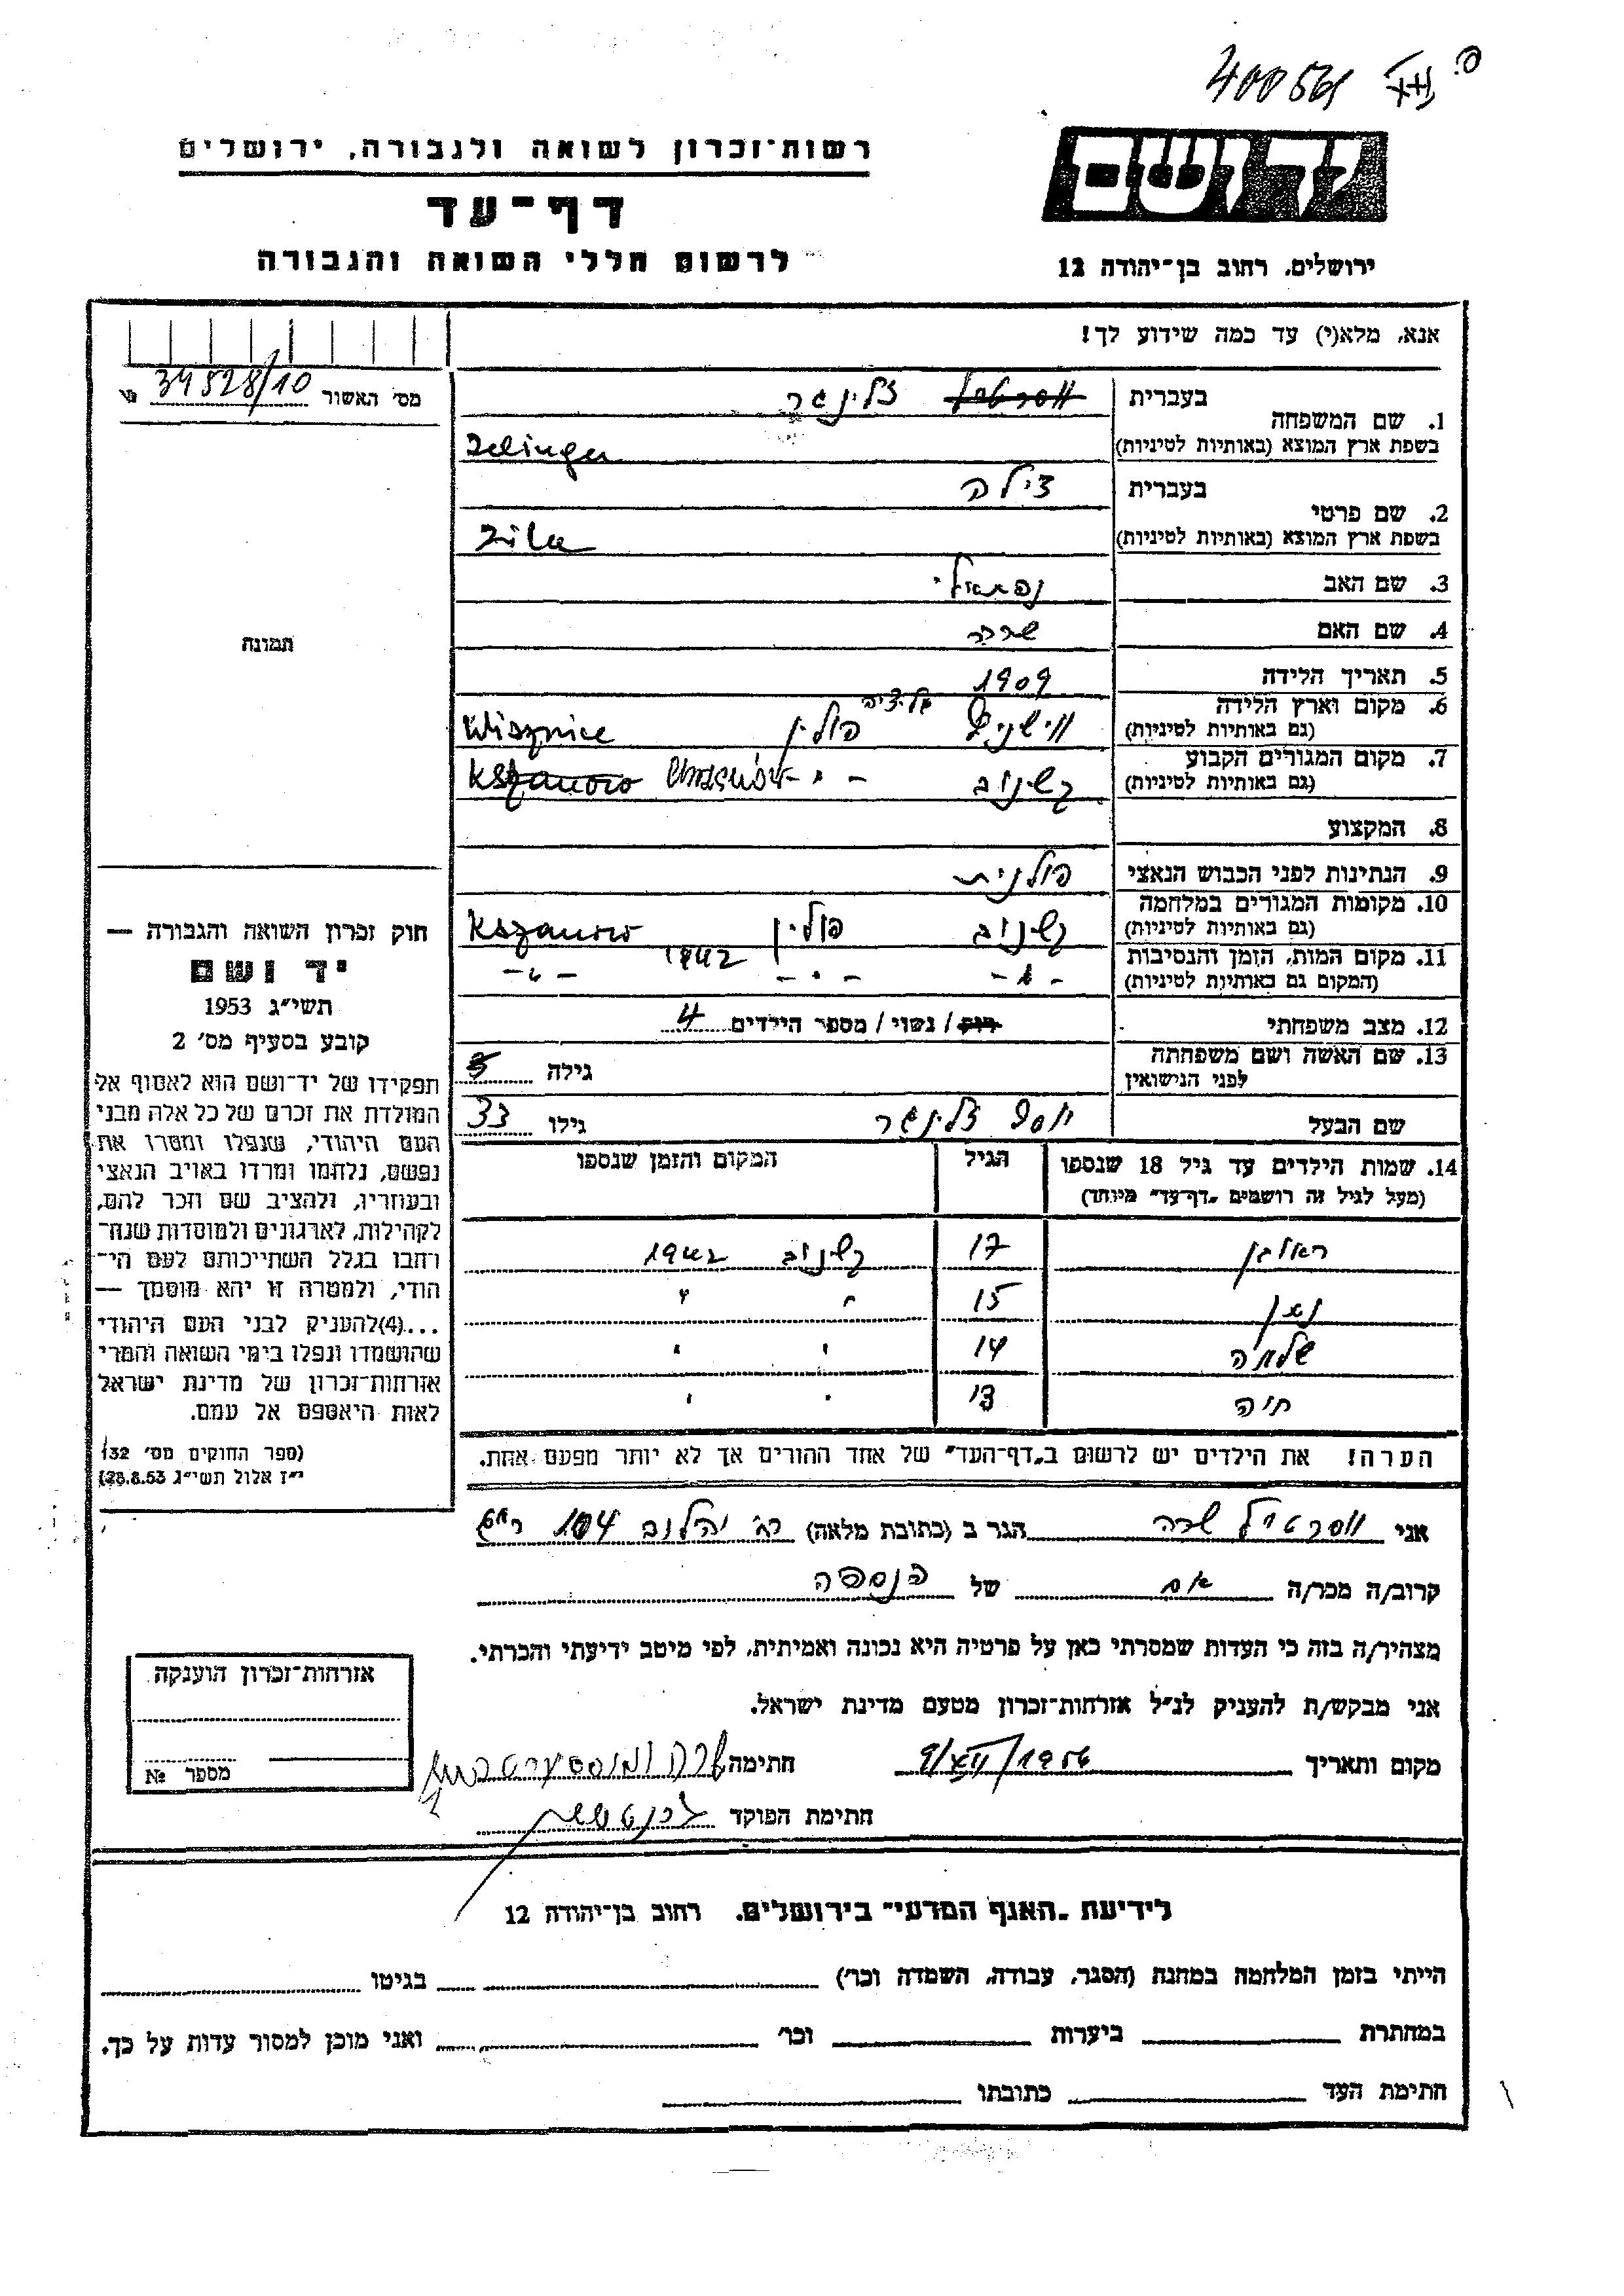 400564 XII
ס.
רשות־זכרון לשואה ולגבורה, ירושלים
דף־עד
לרשום חללי השואה והגבורה
ידושם
ירושלים, רחוב בן־יהודה 12
אנא, מלא(י) עד כמה שידוע לך!
מס' האשור 34528/10 №
1. שם המשפחה
בעברית ווסרטיל צלינגר
בשפת ארץ המוצא (באותיות לטיניות) Zelinger
2. שם פרטי
בעברית צילה
בשפת ארץ המוצא (באותיות לטיניות) Zila
3. שם האב נפתלי
4. שם האם שרה
5. תאריך הלידה 1909
6. מקום וארץ הלידה
(גם באותיות לטיניות) ווישניץ גליציה פולין Wisznice
7. מקום המגורים הקבוע
(גם באותיות לטיניות) קשנוב -"- Chrzanów Kszanow
8. המקצוע
9. הנתינות לפני הכבוש הנאצי פולנית
10. מקומות המגורים במלחמה
(גם באותיות לטיניות) קשנוב פולין Kszanow
11. מקום המות, הזמן והנסיבות
(המקום גם באותיות לטיניות) -"- -"- 1942 -"-
12. מצב משפחתי רוק / נשוי / מספר הילדים 4
13. שם האשה ושם משפחתה
לפני הנישואין גילה
שם הבעל יוסף צלינגר גילו 33
14. שמות הילדים עד גיל 18 שנספו הגיל המקום והזמן שנספו
(מעל לגיל זה רושמים „דף־עד" מיוחד)
ראובן 17 קשנוב 1942
נתן 15 " "
שלמה 14 " "
חוה 13 " "
הערה! את הילדים יש לרשום ב„דף־העד" של אחד ההורים אך לא יותר מפעם אחת.
תמונה
חוק זכרון השואה והגבורה —
יד ושם
תשי"ג 1953
קובע בסעיף מס' 2
תפקידו של יד־ושם הוא לאסוף אל
המולדת את זכרם של כל אלה מבני
העם היהודי, שנפלו ומסרו את
נפשם, נלחמו ומרדו באויב הנאצי
ובעוזריו, ולהציב שם וזכר להם,
לקהילות, לארגונים ולמוסדות שנח־
רבו בגלל השתייכותם לעם הי־
הודי, ולמטרה זו יהא מוסמך —
...(4)להעניק לבני העם היהודי
שהושמדו ונפלו בימי השואה והמרי
אזרחות־זכרון של מדינת ישראל
לאות היאספם אל עמם.
(ספר החוקים מס' 132
י"ז אלול תשי"ג 28.8.53)
אני ווסרטיל שרה הגר ב (כתובת מלאה) רח' 104
קרוב/ה מכר/ה אם של הנספה
מצהיר/ה בזה כי העדות שמסרתי כאן על פרטיה היא נכונה ואמיתית, לפי מיטב ידיעתי והכרתי.
אני מבקש/ת להעניק לנ"ל אזרחות־זכרון מטעם מדינת ישראל.
מקום ותאריך 9/XII/1956 חתימה שרה
חתימת הפוקד
אזרחות־זכרון הוענקה
מספר №
לידיעת „האגף המדעי" בירושלים, רחוב בן־יהודה 12
הייתי בזמן המלחמה במחנה (הסגר, עבודה, השמדה וכר') בגיטו
במחתרת ביערות וכר' ואני מוכן למסור עדות על כך.
חתימת העד כתובתו